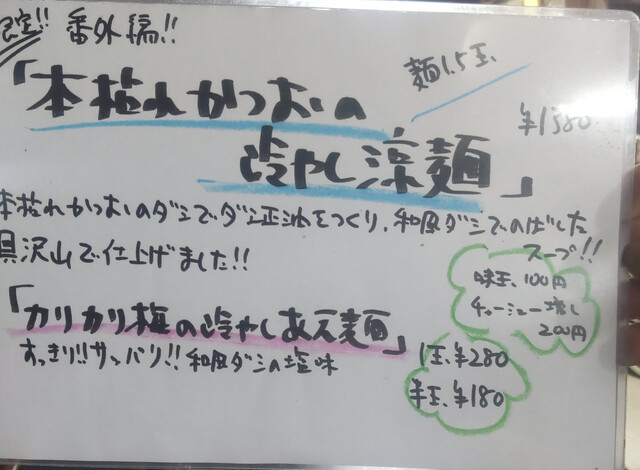 限定!! 番外編!!
麺1.5玉
「本枯れかつおの
¥1380
冷やし涼麺」
本枯れかつおのダシでダシ正油をつくり、和風ダシでのばした
スープ!!
具沢山で仕上げました!!
味玉、100円
チャーシュー増し
200円
「カリカリ梅の冷やしあえ麺」
すっきり!!サッパリ!!和風ダシの塩味
1玉、¥280
半玉、¥180